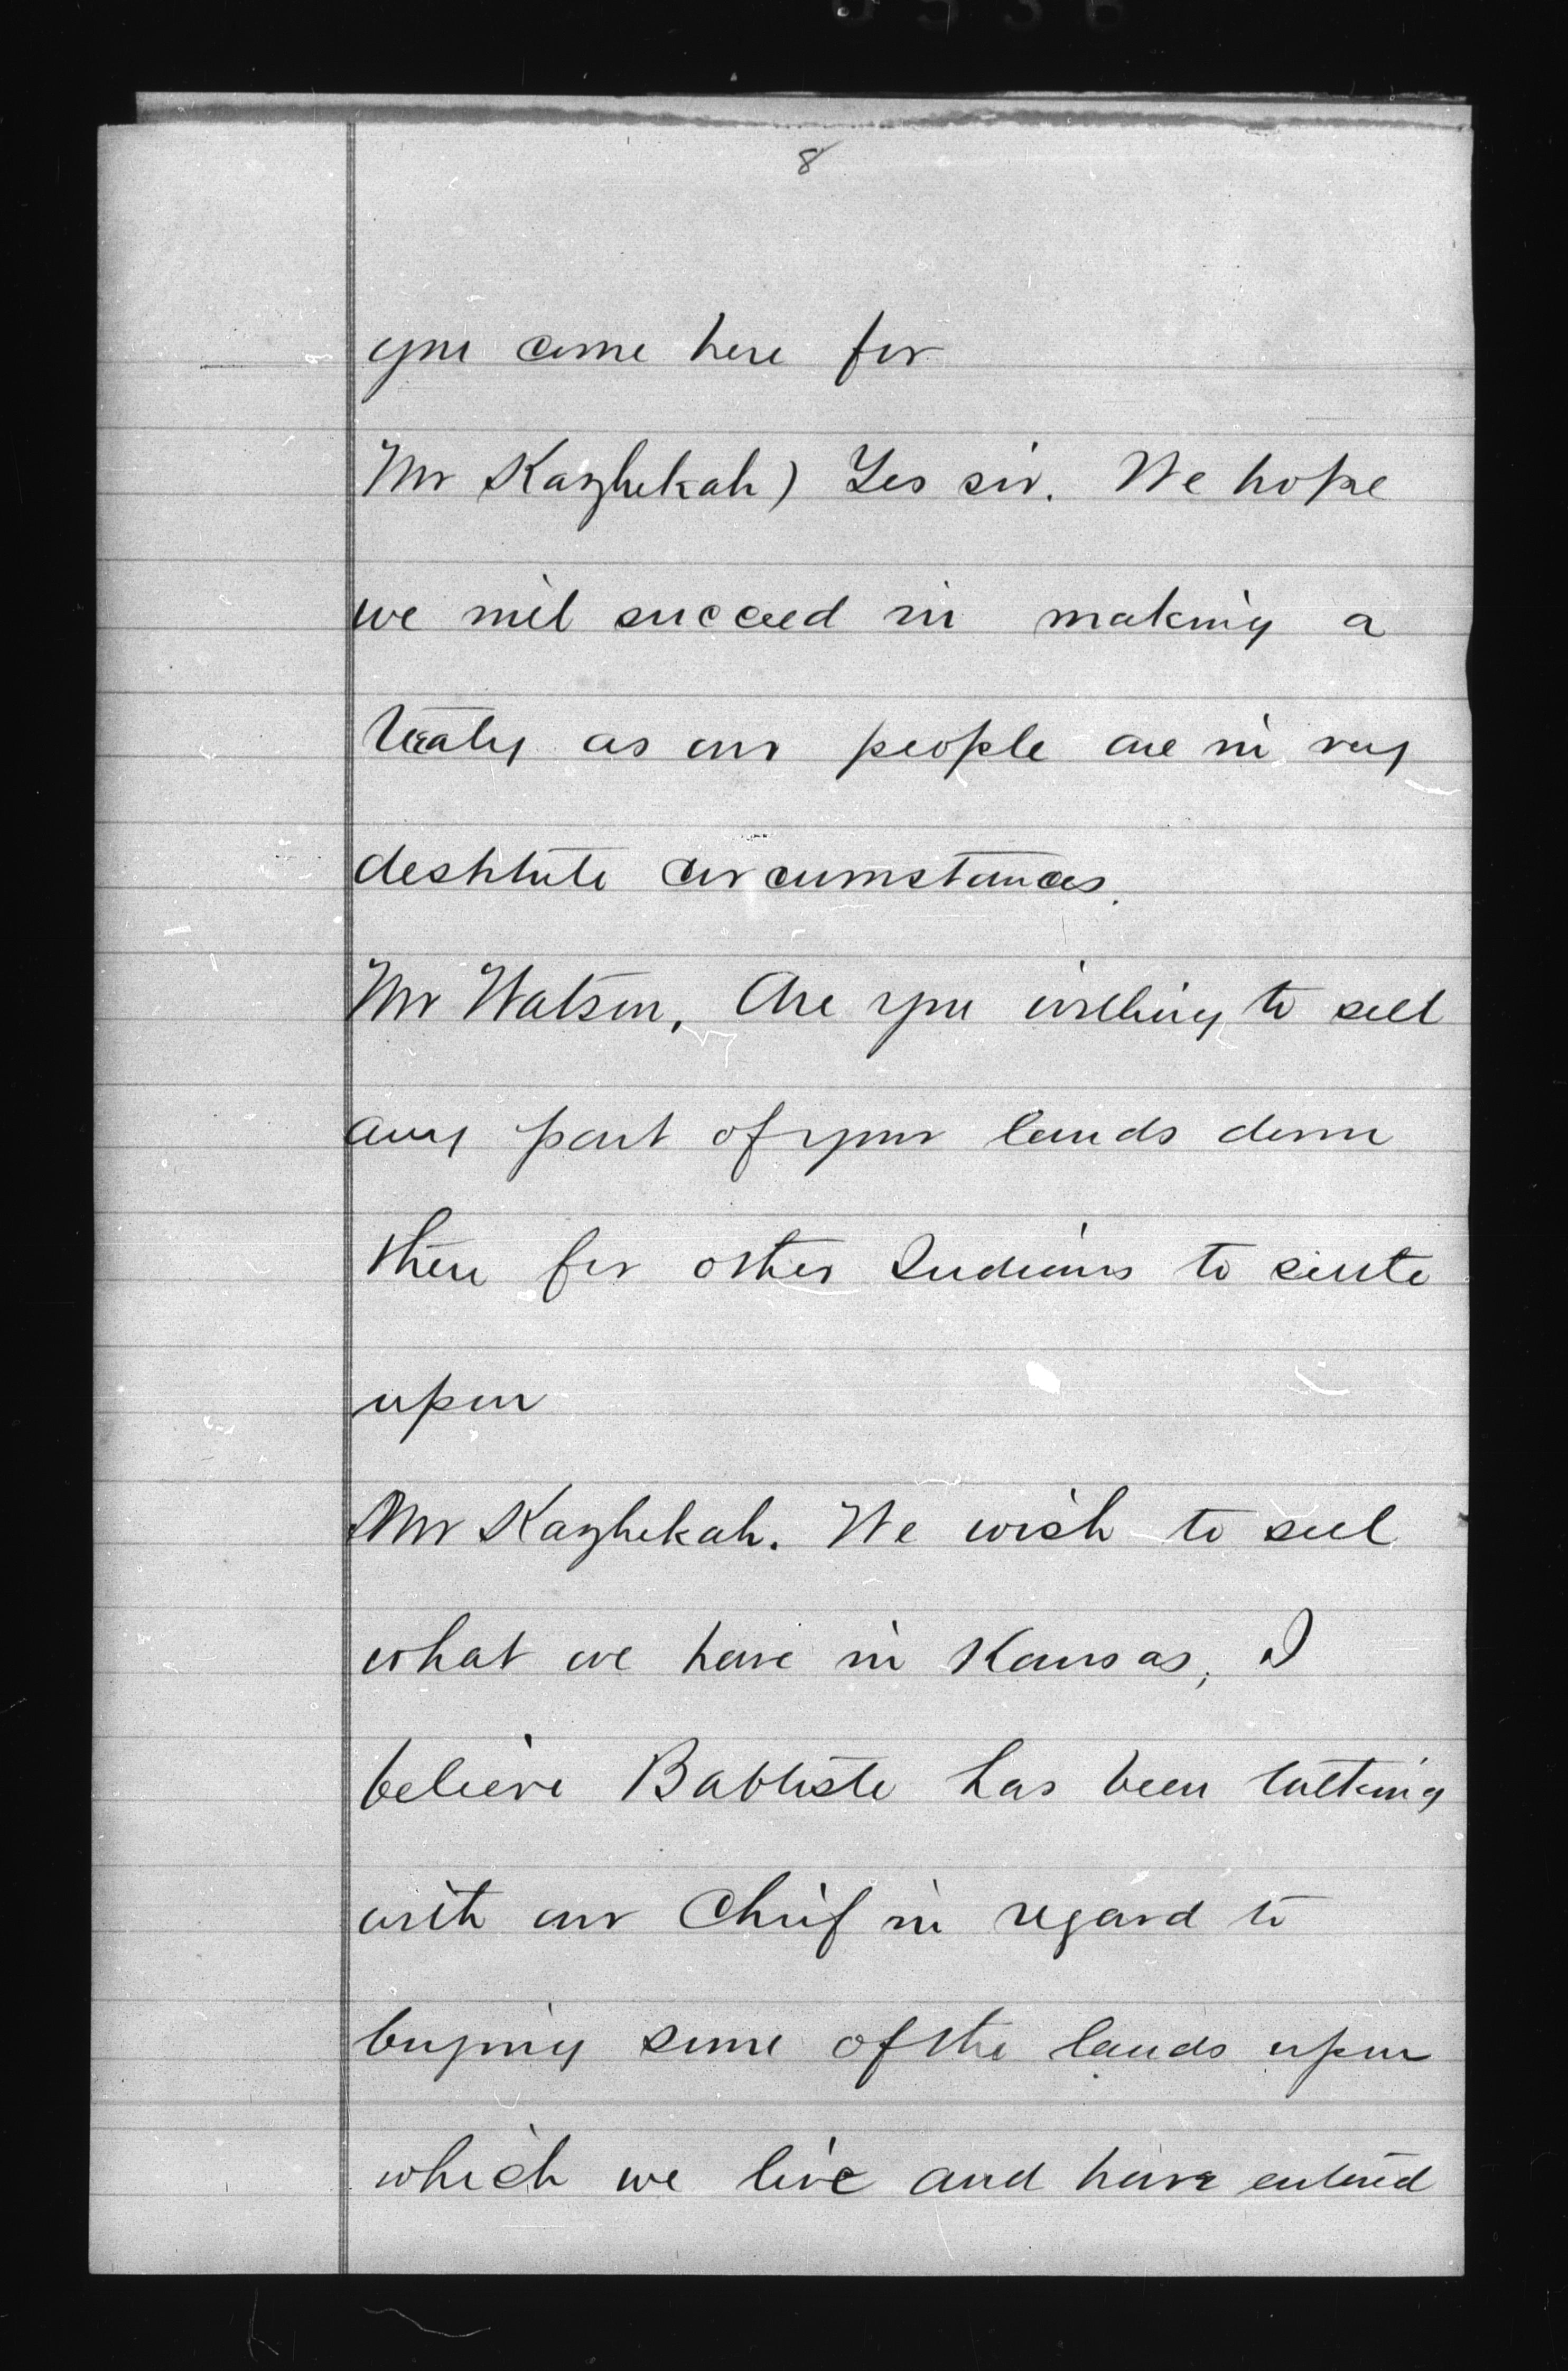 8
you come here for
Mr Kazhekah) Yes sir. We hope
we will succeed in making a
treaty as our people are in very
destitute circumstances.
Mr Watson, Are you willing to sell
any part of your lands down
there for other Indians to settle
upon
Mr Kazhekah. We wish to sell
what we have in Kansas, I
believe Babtiste has been talking
with our Chief in regard to
buying some of the lands upon
which we live and have entered